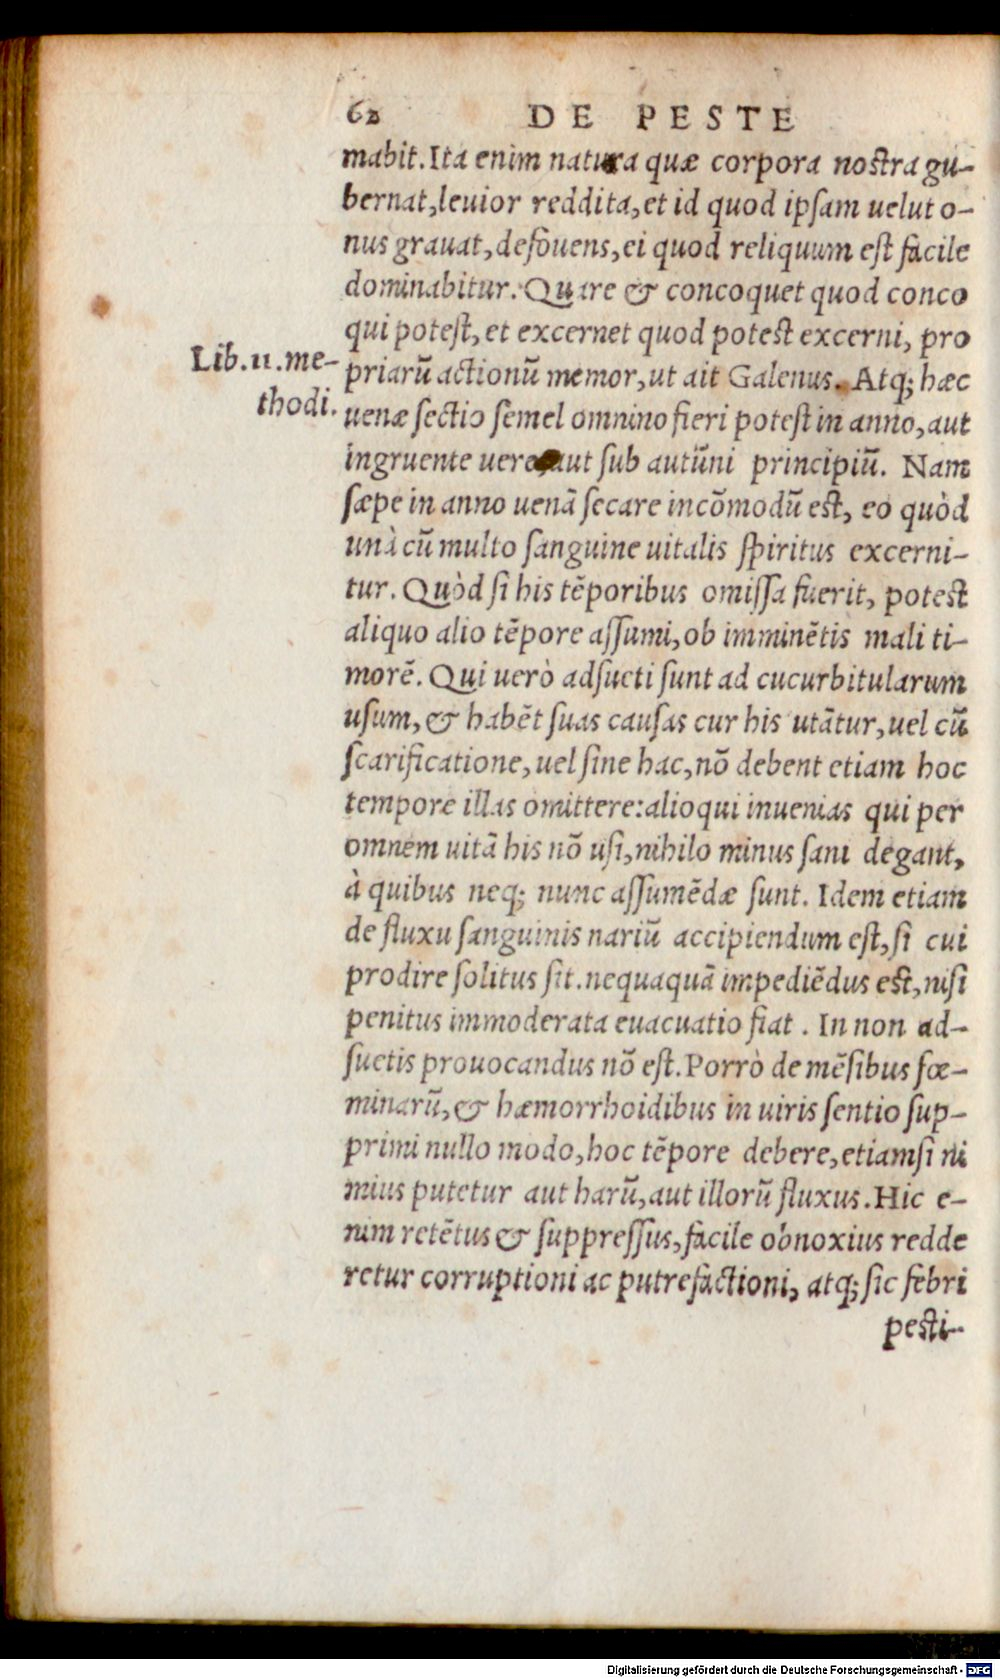 62 DE PESTE
mabit. Ita enim natura quæ corpora nostra gu-
bernat, leuior reddita, et id quod ipsam uelut o-
nus grauat, defouens, ei quod reliquum est facile
dominabitur. Quare & concoquet quod conco
qui potest, et excernet quod potest excerni, pro
Lib. 11. me-
thodi.
priarũ actionũ memor, ut ait Galenus. Atq; hæc
uenæ sectio semel omnino fieri potest in anno, aut
ingruente uere, aut sub autũni principiũ. Nam
sæpe in anno uenã secare incõmodũ est, eo quòd
unà cũ multo sanguine uitalis spiritus excerni-
tur. Quòd si his tẽporibus omissa fuerit, potest
aliquo alio tẽpore assumi, ob imminẽtis mali ti-
morẽ. Qui uerò adsueti sunt ad cucurbitularum
usum, & habẽt suas causas cur his utãtur, uel cũ
scarificatione, uel sine hac, nõ debent etiam hoc
tempore illas omittere: alioqui inuenias qui per
omnem uitã his nõ usi, nihilo minus sani degant,
à quibus neq; nunc assumẽdæ sunt. Idem etiam
de fluxu sanguinis nariũ accipiendum est, si cui
prodire solitus sit. nequaquã impediẽdus est, nisi
penitus immoderata euacuatio fiat. In non ad-
suetis prouocandus nõ est. Porrò de mẽsibus fœ-
minarũ, & hæmorrhoidibus in uiris sentio sup-
primi nullo modo, hoc tẽpore debere, etiamsi ni
mius putetur aut harũ, aut illorũ fluxus. Hic e-
nim retẽtus & suppressus, facile obnoxius redde
retur corruptioni ac putrefactioni, atq; sic febri
pesti-
Digitalisierung gefördert durch die Deutsche Forschungsgemeinschaft - DFG